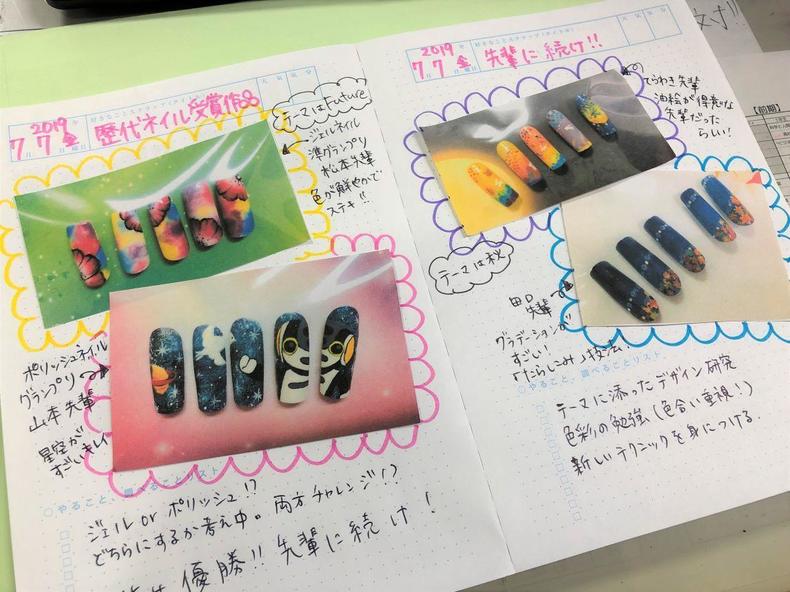 2019年
7月7日金
歴代ネイル受賞作品
テーマはFuture
ジェルネイル
準グランプリ
松本先輩
色が鮮やかで
ステキ!!
ポリッシュネイル
グランプリ
山本先輩
星空が
すごいキレイ
○やること、調べることリスト
ジェル or ポリッシュ!?
どちらにするか考え中。両方チャレンジ!?
優勝!! 先輩に続け!
2019年
7月7日金
好きなことスクラップ(タイトル)
天気
気分
先輩に続け!!
てらわき先輩
油絵が得意な
先輩だった
らしい!
テーマは秋
田口
先輩
グラデーションが
すごい!
「たらしこみ」技法
○やること、調べることリスト
テーマに添ったデザイン研究
色彩の勉強(色合い重視!)
新しいテクニックを身につける.
【前期】